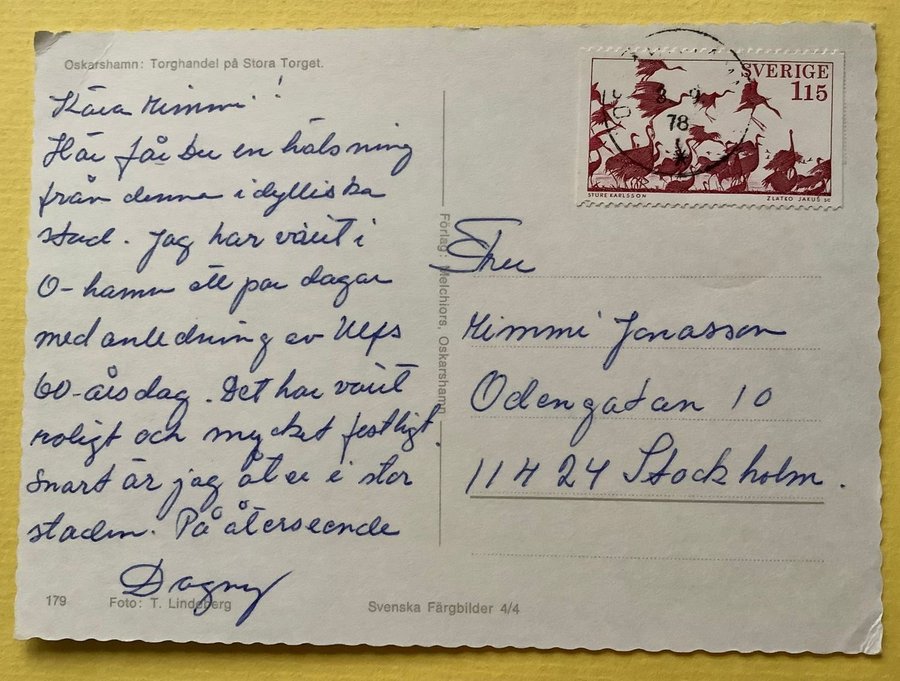 Oskarshamn: Torghandel på Stora Torget.
Kära Mimmi!
Här får Du en hälsning
från denna idylliska
stad. Jag har varit i
O-hamn ett par dagar
med anledning av Ulfs
60-årsdag. Det har varit
roligt och mycket festligt.
Snart är jag åter i stor
staden. På återseende
Dagny
179
Foto: T. Lindeberg
Svenska Färgbilder 4/4
Förlag: Melchiors, Oskarshamn
SVERIGE
115
STURE KARLSSON
ZLATKO JAKUS SC
8 9
78
Fru
Mimmi Jonasson
Odengatan 10
114 24 Stockholm.